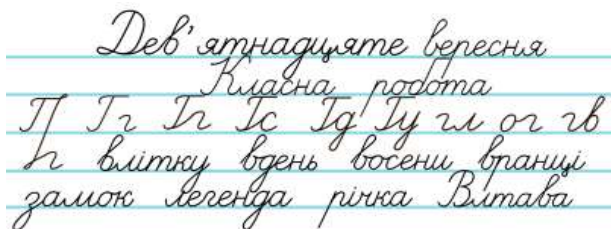 Дев'ятнадцяте вересня
Класна робота
П Гг Гп Гс Гд Гу гл ог гв
h влітку вдень восени вранці
замок легенда річка Влтава